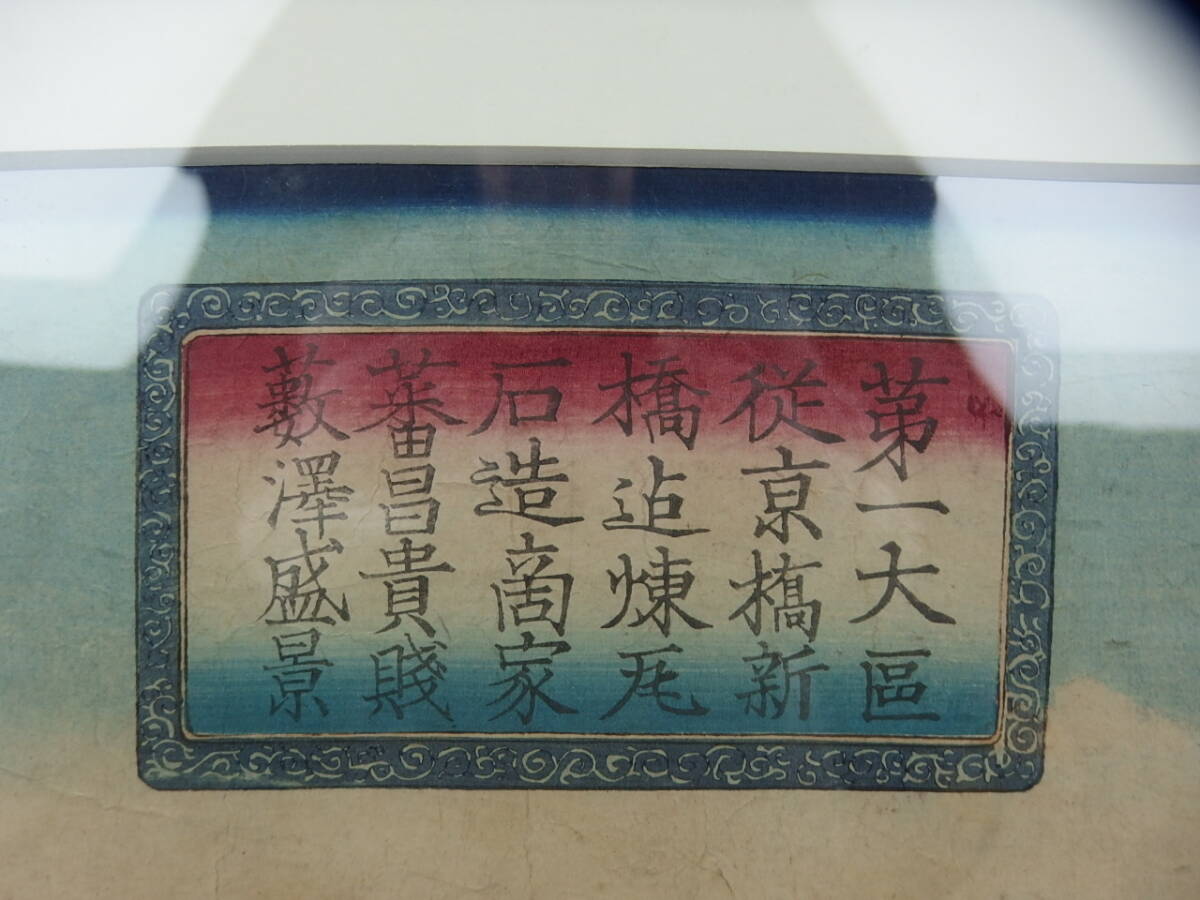 苐一大區
従亰橋新
橋迠煉瓦
石造商家
蕃昌貴賤
藪澤盛景